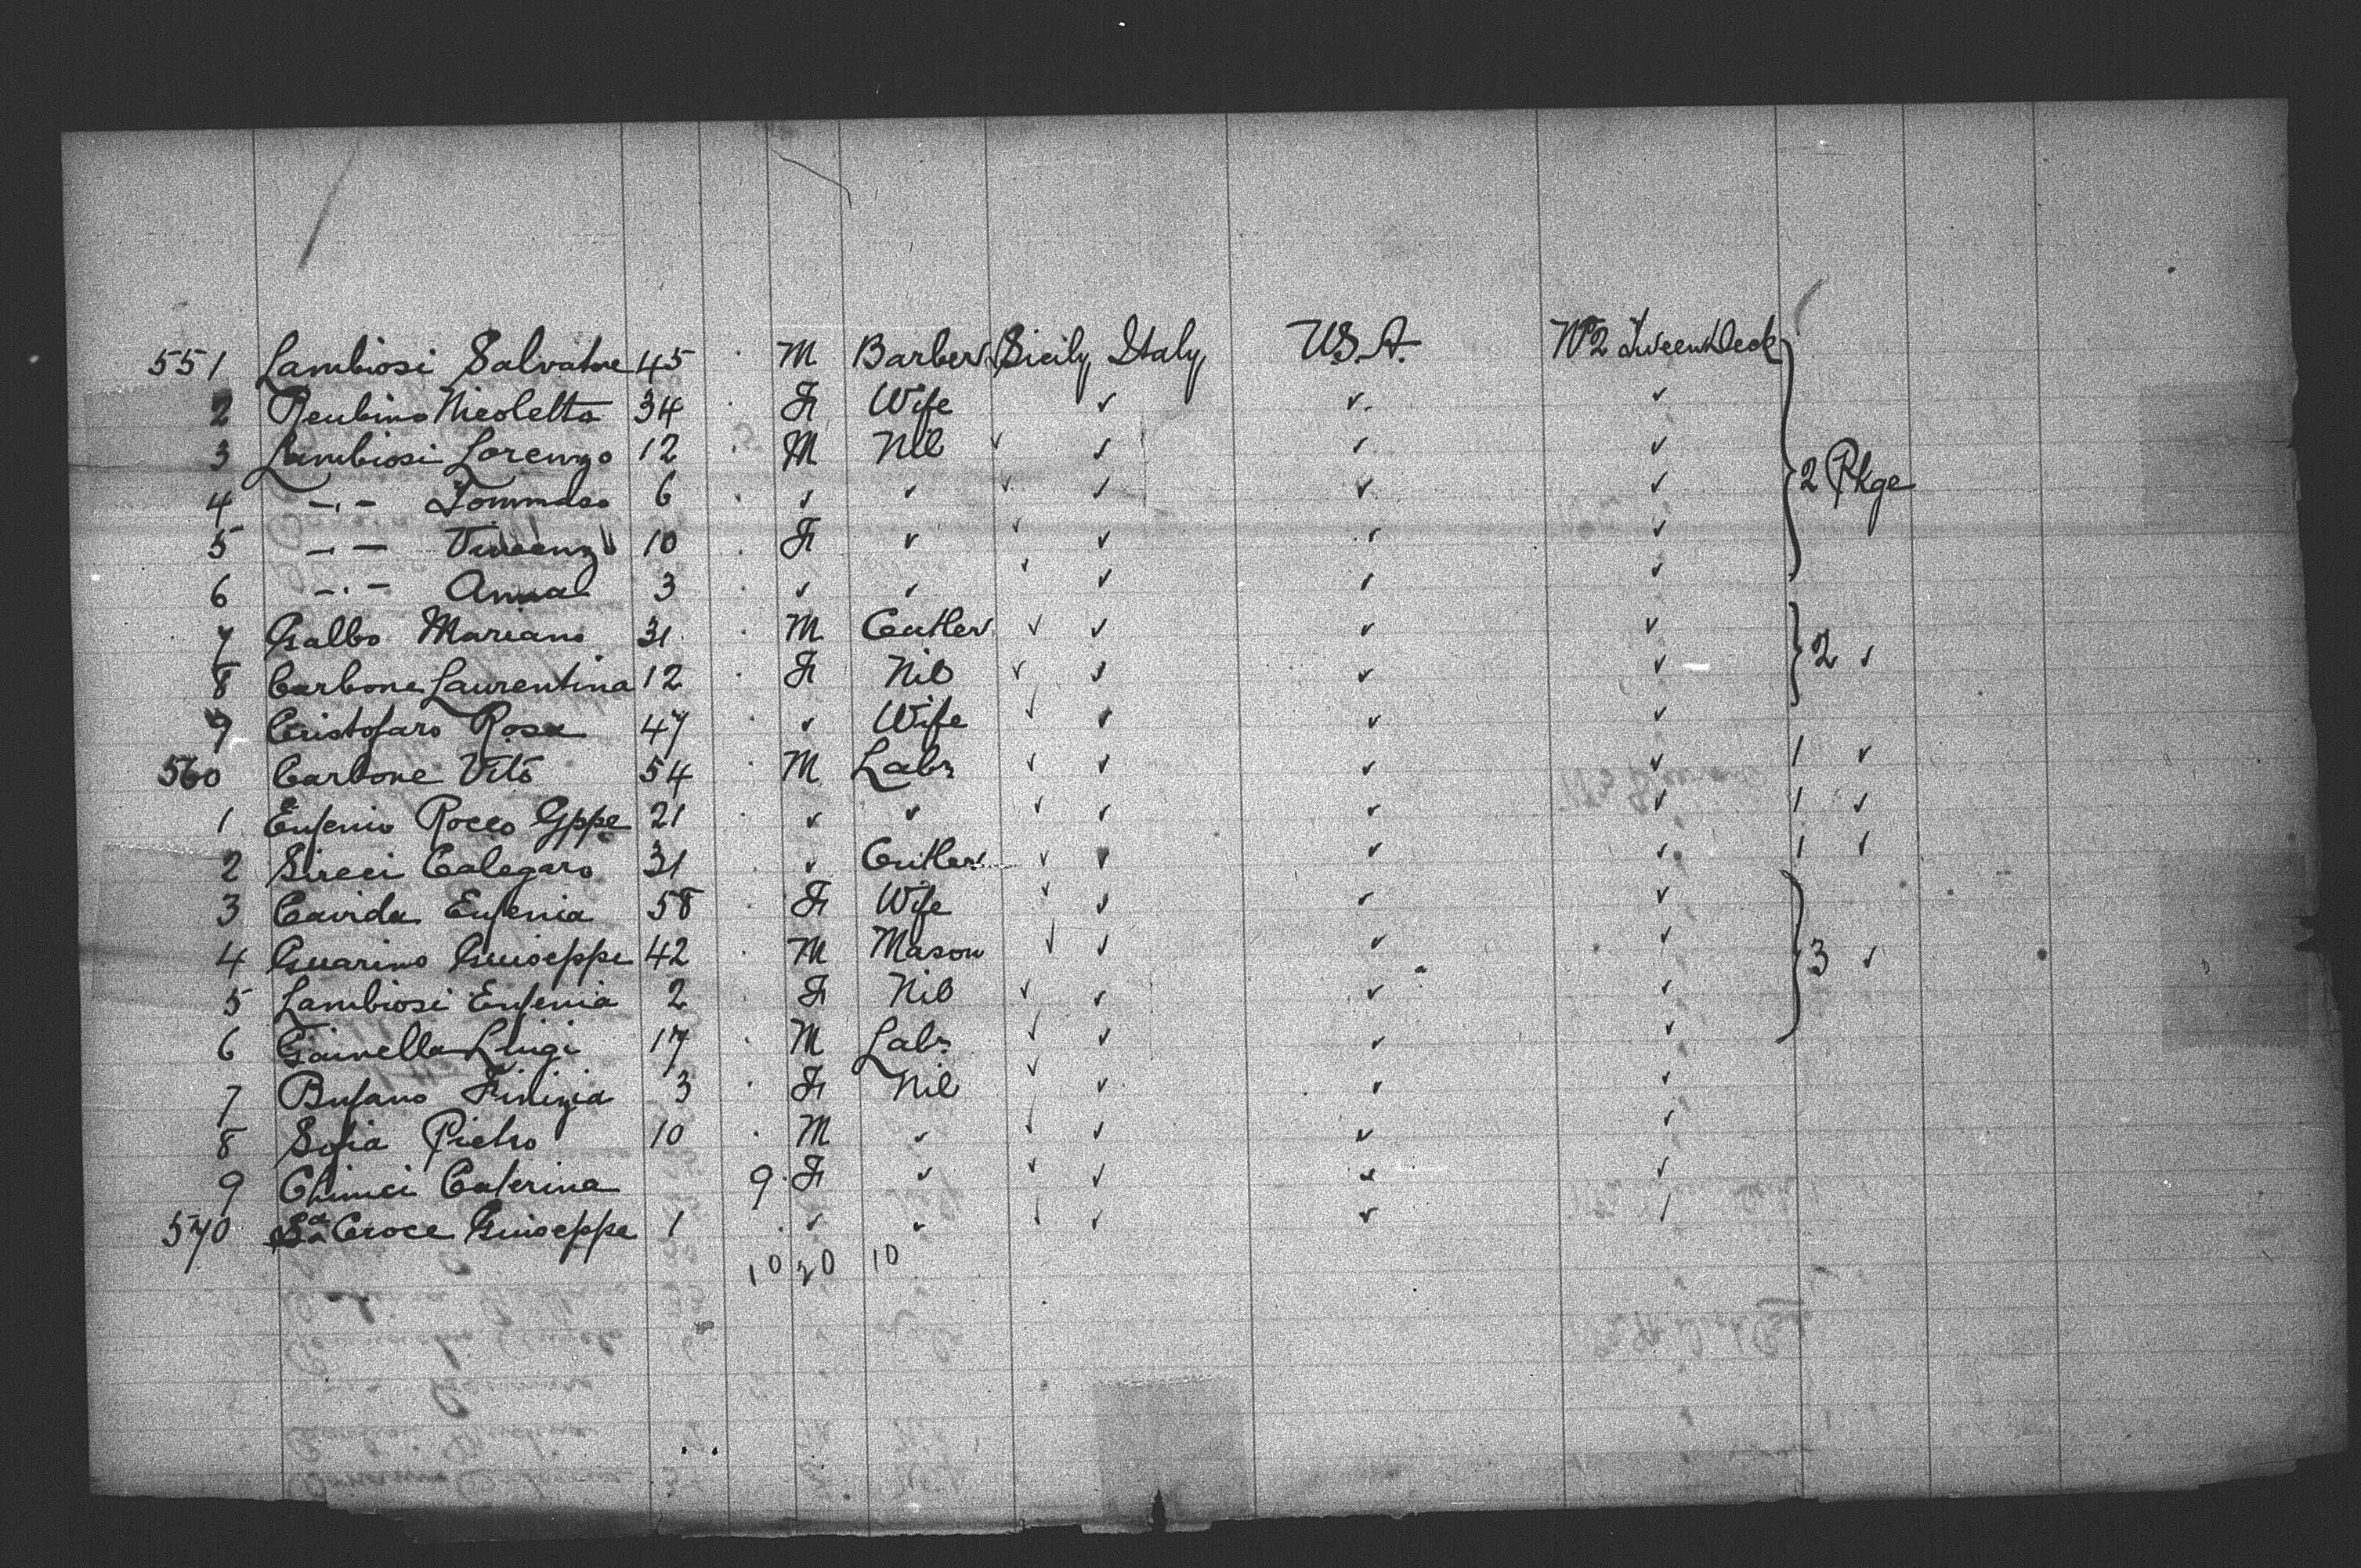 551 Lambiosi Salvatore 45 M Barber Sicily Italy U.S.A. No 2 Tween Deck
2 Reubino Nicoletta 34 F Wife ✓ ✓ ✓
3 Lambiosi Lorenzo 12 M Nil ✓ ✓ ✓ ✓ 2 Pkge
4 -.- Tommaso 6 ✓ ✓ ✓ ✓ ✓ ✓
5 -.- Vincenz 10 F ✓ ✓ ✓ ✓ ✓
6 -.- Anna 3 ✓ ✓ ✓ ✓ ✓ ✓
7 Galbo Mariano 31 M Cutler ✓ ✓ ✓ ✓ 2 ✓
8 Carbone Laurentina 12 F Nil ✓ ✓ ✓ ✓
9 Cristofaro Rosa 47 ✓ Wife ✓ ✓ ✓ ✓
560 Carbone Vito 54 M Labr ✓ ✓ ✓ ✓ 1 ✓
1 Eufenio Rocco Gppe 21 ✓ ✓ ✓ ✓ ✓ ✓ 1 ✓
2 Sireci Calegaro 31 ✓ Cutler ✓ ✓ ✓ ✓ 1 ✓
3 Cavida Eufenia 58 F Wife ✓ ✓ ✓ ✓
4 Guarino Guiseppe 42 M Mason ✓ ✓ ✓ ✓ 3 ✓
5 Lambiosi Eufenia 2 F Nil ✓ ✓ ✓ ✓
6 Gainella Luigi 17 M Labr ✓ ✓ ✓ ✓
7 Bufano Finizia 3 F Nil ✓ ✓ ✓ ✓
8 Sofia Pietro 10 M ✓ ✓ ✓ ✓ ✓
9 Chimici Caterina 9 F ✓ ✓ ✓ ✓ ✓
570 Sa Croce Guiseppe 1 ✓ ✓ ✓ ✓ ✓ ✓
10 20 10